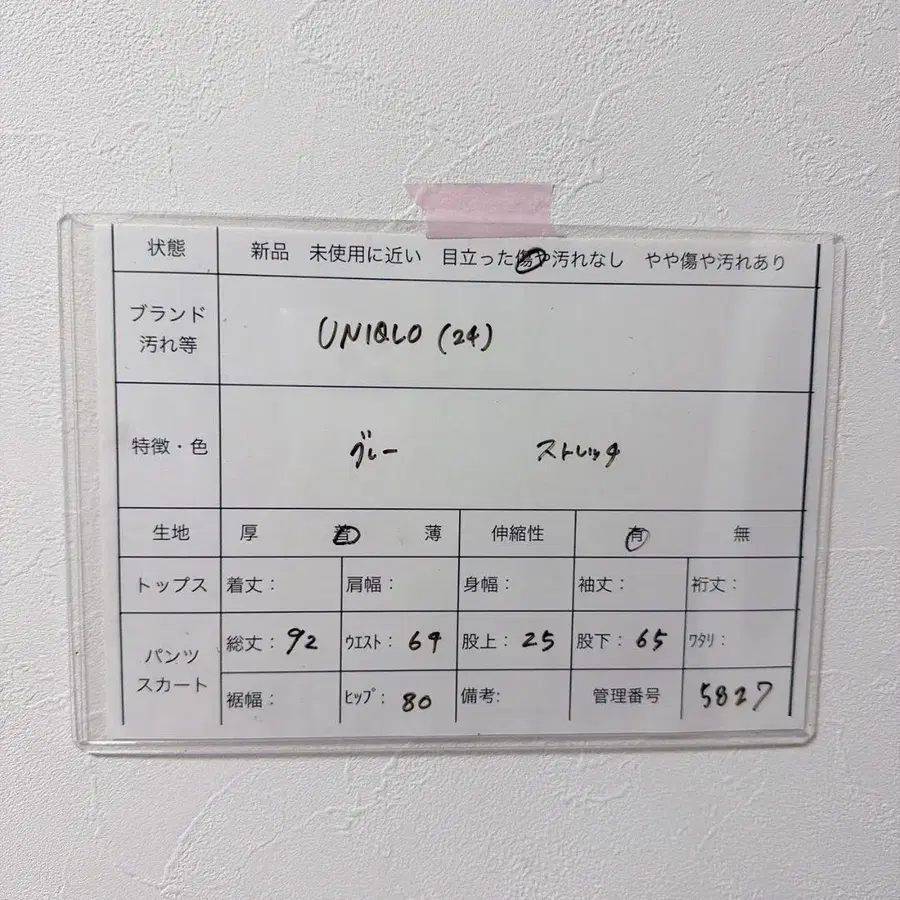 状態 新品 未使用に近い 目立った傷や汚れなし やや傷や汚れあり
ブランド
汚れ等
UNIQLO (24)
特徴・色 グレー ストレッチ
生地 厚 普 薄 伸縮性 有 無
トップス 着丈: 肩幅: 身幅: 袖丈: 裄丈:
パンツ
スカート
総丈: 92 ウエスト: 69 股上: 25 股下: 65 ワタリ:
裾幅: ヒップ: 80 備考: 管理番号 5827